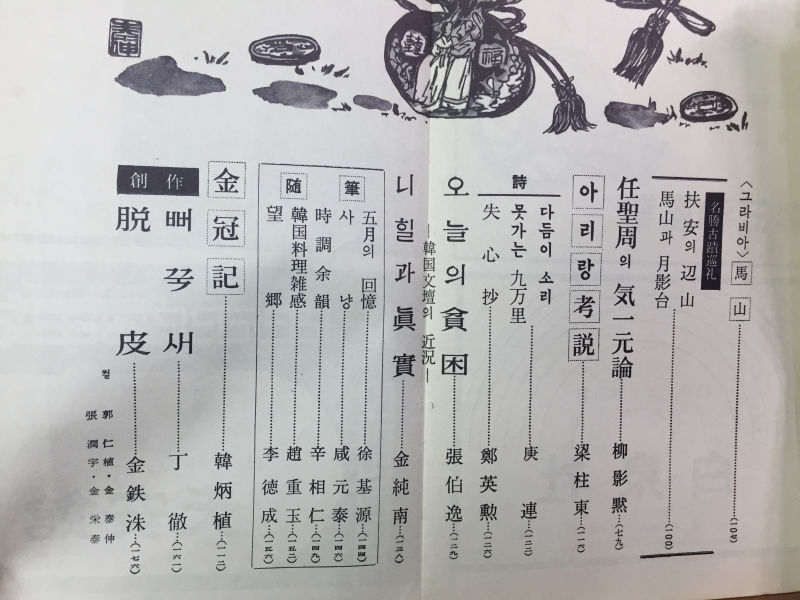 韓
福
〈그라비아〉馬山……(一〇五)
名勝古蹟巡礼
扶安의 辺山
馬山과 月影台……(一〇〇)
任聖周의 気一元論……柳影黙…(七九)
아리랑考説……梁柱東…(一一六)
詩
다듬이 소리
못가는 九万里……庚連…(一二三)
失心抄……鄭英勲…(一二六)
오늘의 貧困……張伯逸…(一二九)
―韓国文壇의 近況―
니힐과 眞實……金純南…(一三八)
随筆
五月의 回憶……徐基源…(一四四)
사냥……咸元泰…(一四六)
時調余韻……辛相仁…(一四九)
韓国料理雑感……趙重玉…(一五二)
望郷……李徳成…(一五六)
金冠記……韓炳植…(一一二)
創作
뻐꾹새……丁徹…(一六一)
脱皮……金鉄洙…(一七六)
컽 郭仁植・金泰伸
張潤宇・金栄泰